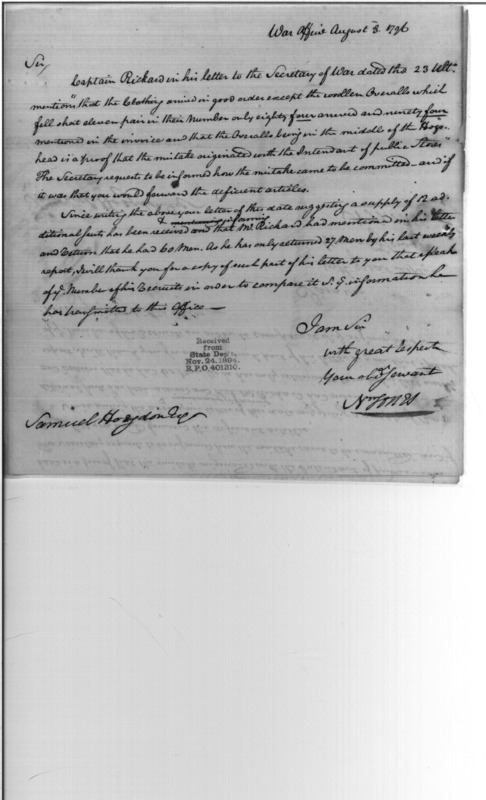 War Office August 3. 1796
Sir,
Captain Rickard in his letter to the Secretary of War dated the 23 Ulto.
mentions "that the Clothing arrived in good order except the woollen Overalls which
fell short eleven pair in their Number only eighty four arrived and ninety four
mentioned in the invoice and that the Overalls being in the middle of the Hogs-
head is a proof that the mistake originated with the Intendant of public Stores"
The Secretary requests to be informed how the mistake came to be committed and if
it was that you would forward the deficient articles.
Since writing the above your letter of this date suggesting a supply of 12 ad-
ditional suits has been received and informing that Mr Rickard had mentioned in his letter
and Return that he had 60 Men. As he has only returned 27 Men by his last weekly
report, I will thank you for a copy of such part of his letter to you that speaks
of ye. Number of his Recruits in order to compare it with ye. information he
has transmitted to this Office —
I am Sir
with great respect
Your obt. Servant
Nn Jones
Received
from
State Dept.,
Nov. 24, 1894.
R.P.O. 401210.
Samuel Hogdon Esqr